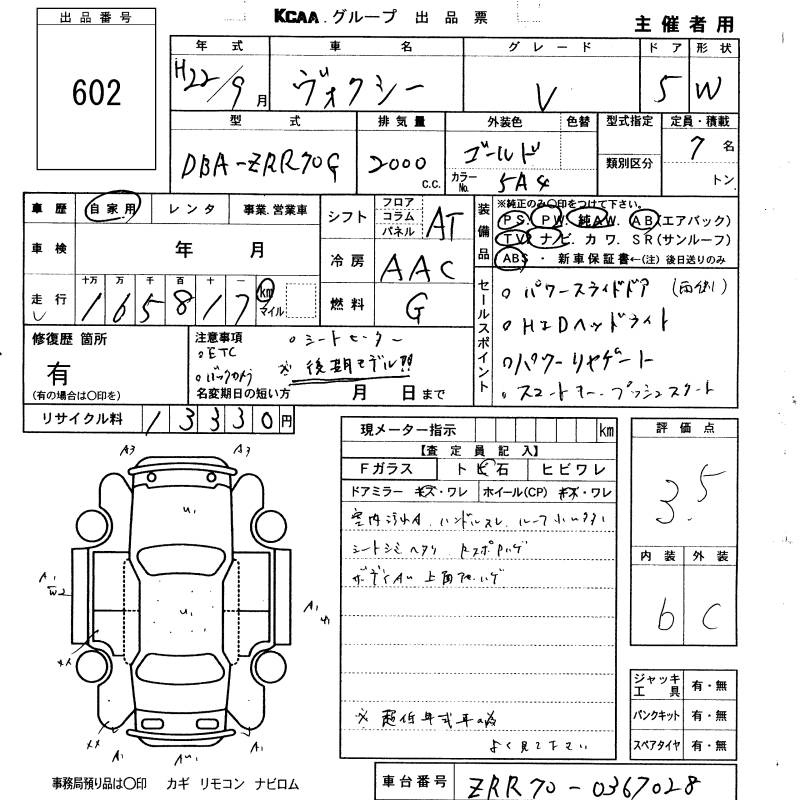 出品番号
KCAA.グループ 出品票
主催者用
602
年式 車名 グレード ドア 形状
H22/9月 ヴォクシー V 5 W
型式 排気量 外装色 色替 型式指定 定員・積載
DBA-ZRR70G 2000 c.c. ゴールド 7名
カラーNo. 5A4 類別区分 トン
車歴 自家用 レンタ 事業.営業車
シフト フロア コラム パネル AT
装備品 ※純正のみ〇印をつけて下さい。
PS. PW. 純AW. AB(エアバック)
TV. ナビ. カワ. SR(サンルーフ)
ABS ・ 新車保証書←(注)後日送りのみ
車検 年 月
冷房 AAC
走行 十万 万 千 百 十 一
165817 km マイル
燃料 G
セールスポイント
。パワースライドドア (両側)
。HIDヘッドライト
。パワーリヤゲート
。スマートキー.プッシュスタート
修復歴 箇所
有
(有の場合は〇印を)
注意事項 。シートヒーター
。ETC
。バックカメラ ※後期モデル!!
名変期日の短い方 月 日まで
リサイクル料 13330円
現メーター指示 km
【査定員記入】
Fガラス トビ石 ヒビワレ
ドアミラー キズ・ワレ ホイール(CP) キズ・ワレ
室内汚れ ハンドルスレ
シートシミヘタリ
上面
※超低年式車の為
よく見て下さい
評価点
3.5
内装 外装
b C
A3 A3
U1
A1
W2
U1
A1
U1
XX
XX
A1 AU1 A1
ジャッキ工具 有・無
パンクキット 有・無
スペアタイヤ 有・無
事務局預り品は〇印 カギ リモコン ナビロム
車台番号 ZRR70-0367028